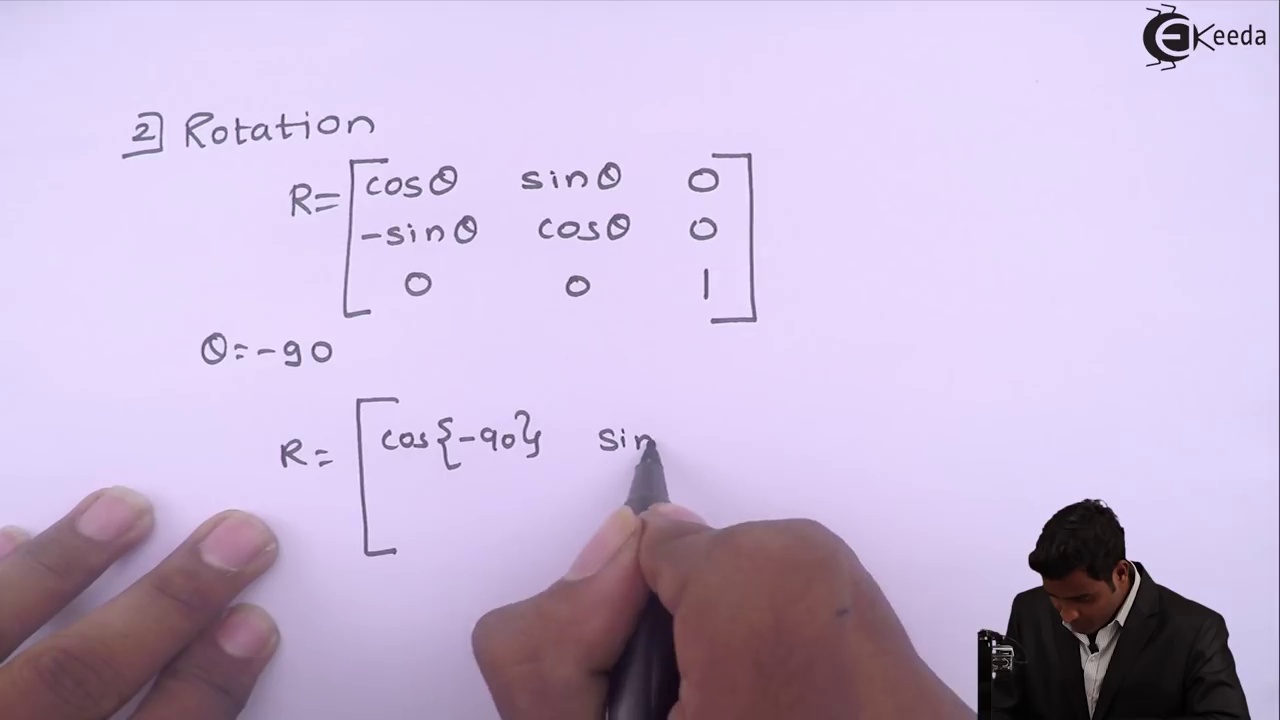 EKeeda
2] Rotation
R= [ cosθ sinθ 0
-sinθ cosθ 0
0 0 1 ]
θ=-90
R= [ cos{-90} sin